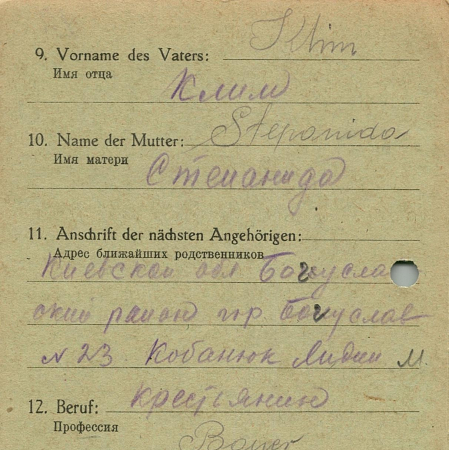 Klim
9. Vorname des Vaters:
Имя отца
Клим
10. Name der Mutter: Stepanida
Имя матери
Степанида
11. Anschrift der nächsten Angehörigen:
Адрес ближайших родственников
Киевской обл Богуслав
ский район гр. Богуслав
N 23 Кобанюк Лидии М
12. Beruf: крестьянин
Профессия
Bauer